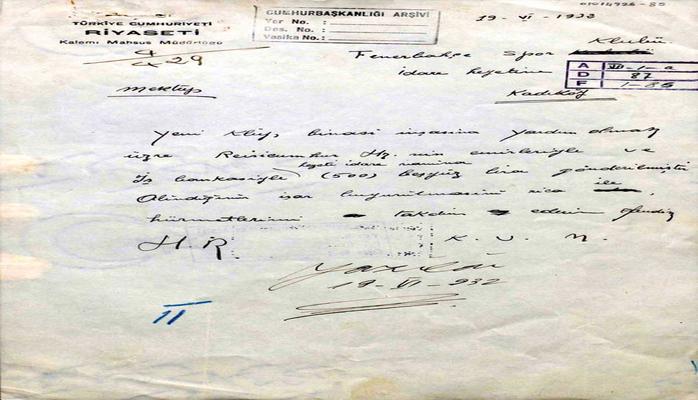 01014926-85
TÜRKİYE CUMHURİYETİ
RİYASETİ
Kalemi Mahsus Müdürlüğü
4/429
CUMHURBAŞKANLIĞI ARŞİVİ
Yer No. :
Dos. No. :
Vesika No. :
19-VI-1932
Fenerbahçe Spor Klubü
idare heyetine
A VI-1-a
D 87
F 1-85
Mektup
Kadıköy
Yeni klüp binası inşasına yardım olmak
üzre Reisicumhur Hz. nin emirleriyle ve
heyeti idare namına
İş bankasiyle (500) beşyüz lira gönderilmiştir
Alındığının iş'ar buyurulmasını rica ile
hürmetlerimi takdim ederim efendim
H. R. K. U. M.
Yazıldı
19-VI-932
II